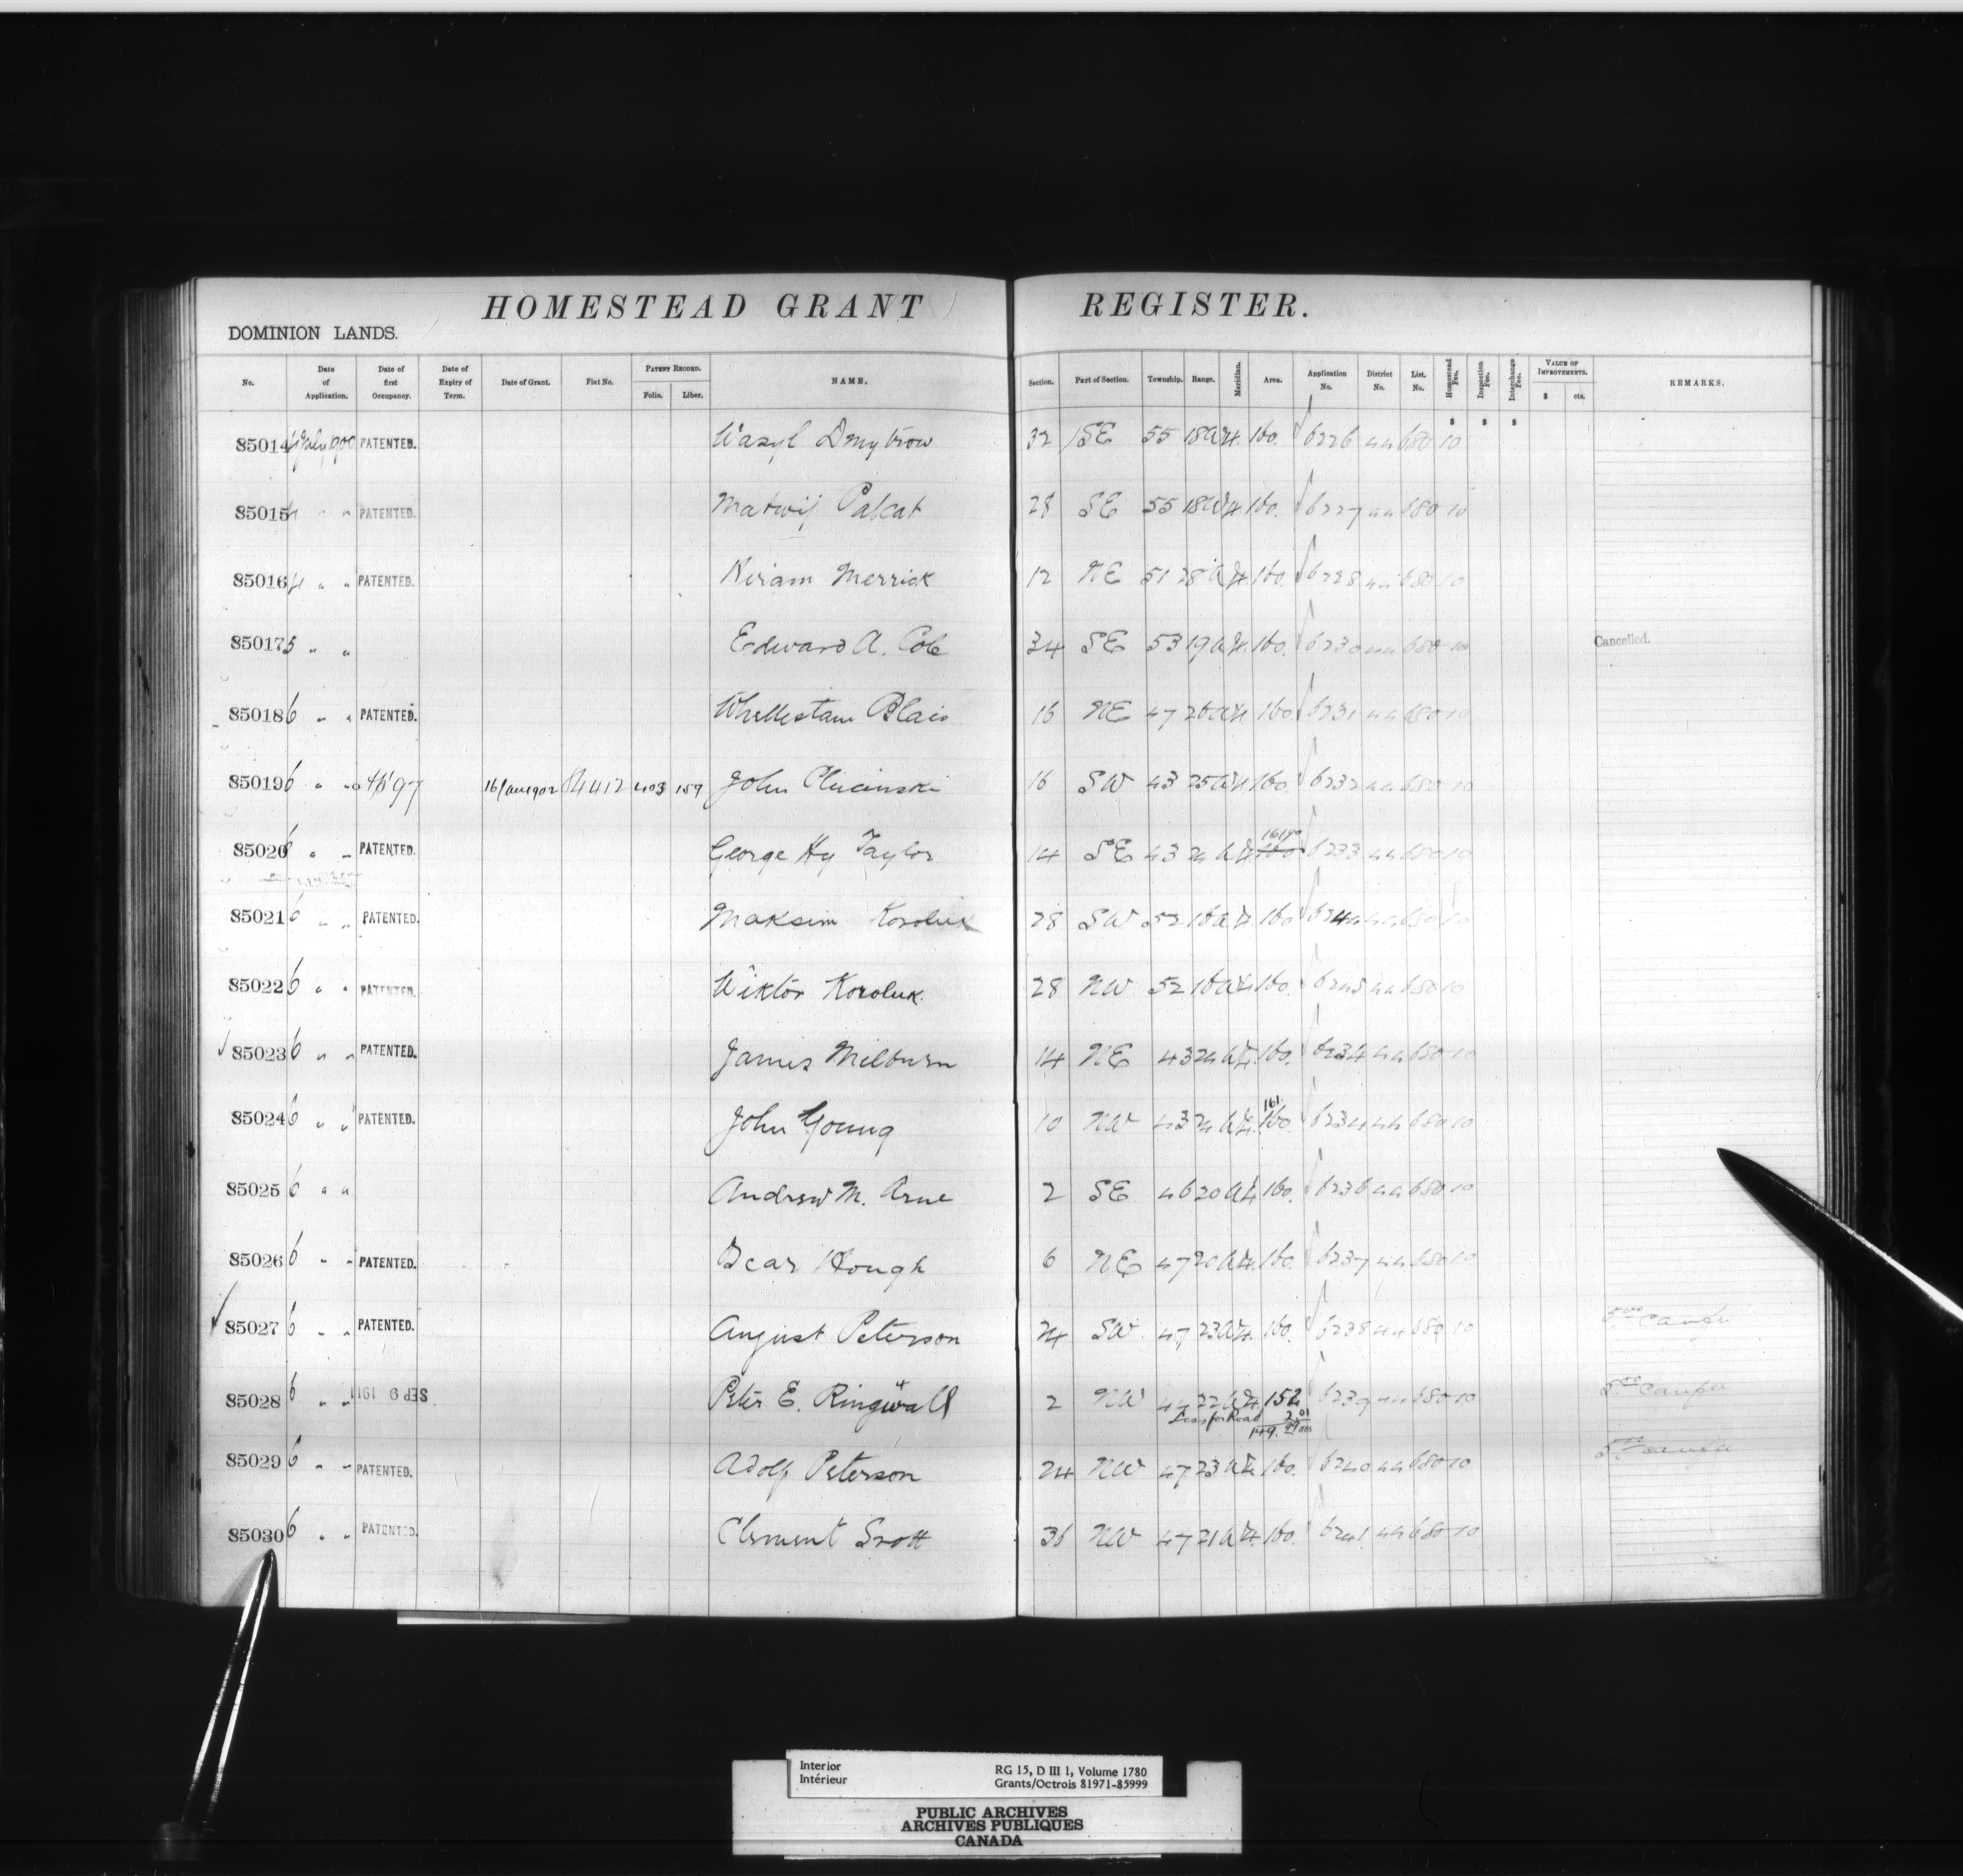 HOMESTEAD GRANT REGISTER.
DOMINION LANDS.
No. Date of Application. Date of first Occupancy. Date of Expiry of Term. Date of Grant. Fiat No. PATENT RECORD. Folio. Liber. NAME. Section. Part of Section. Township. Range. Meridian. Area. Application No. District No. List. No. Homestead Fee. Inspection Fee. Interchange Fee. VALUE OF IMPROVEMENTS. $ cts. REMARKS.
$ $ $
85014 4 July 1900 PATENTED. Wasyl Dmytrow 32 SE 55 18 W 4. 160. 6226 44 680 10
85015 4 " " PATENTED. Matwij 28 SE 55 18 W 4. 160. 6227 44 680 10
85016 4 " " PATENTED. Hiram Merrick 12 NE 51 28 W 4. 160. 6228 44 680 10
85017 5 " " Edward A. Cole 34 SE 53 19 W 4. 160. 6230 44 680 10 Cancelled.
85018 6 " " PATENTED. Blais 16 NE 47 26 W 4. 160. 6231 44 680 10
85019 6 " " 97 16 Jan 1902 84412 403 159 John 16 SW 43 25 W 4 160. 6232 44 680 10
85020 6 " " PATENTED. George Hy Taylor 14 SE 43 24 W 4. 160 6233 44 680 10
85021 6 " " PATENTED. Maksim Koroluk 28 SW 52 16 W 4. 160 6244 44 680 10
85022 6 " " PATENTED. Wiktor Koroluk. 28 NW 52 16 W 4. 160. 6245 44 680 10
85023 6 " " PATENTED. James Milburn 14 NE 43 24 W 4. 160. 6234 44 680 10
161.
85024 6 " " PATENTED. John Young 10 NW 43 24 W 4. 160. 6234 44 680 10
85025 6 " " Andrew M. Arne 2 SE 46 20 W 4. 160. 6236 44 680 10
85026 6 " " PATENTED. Hough 6 NE 47 20 W 4. 160. 6237 44 680 10
85027 6 " " PATENTED. August Peterson 24 SW 47 23 W 4. 160. 6238 44 680 10
85028 6 " " SEP 9 1911 Peter E. Ringwall 2 NW 47 22 W 4. 152 6239 44 680 10
Less for Road 2.01
149.99 acs
85029 6 " " PATENTED. Adolf Peterson 24 NW 47 23 W 4. 160. 6240 44 680 10
85030 6 " " PATENTED. Clement Srott 36 NW 47 21 W 4. 160. 6241 44 680 10
Interior
Intérieur
RG 15, D III 1, Volume 1780
Grants/Octrois 81971-85999
PUBLIC ARCHIVES
ARCHIVES PUBLIQUES
CANADA